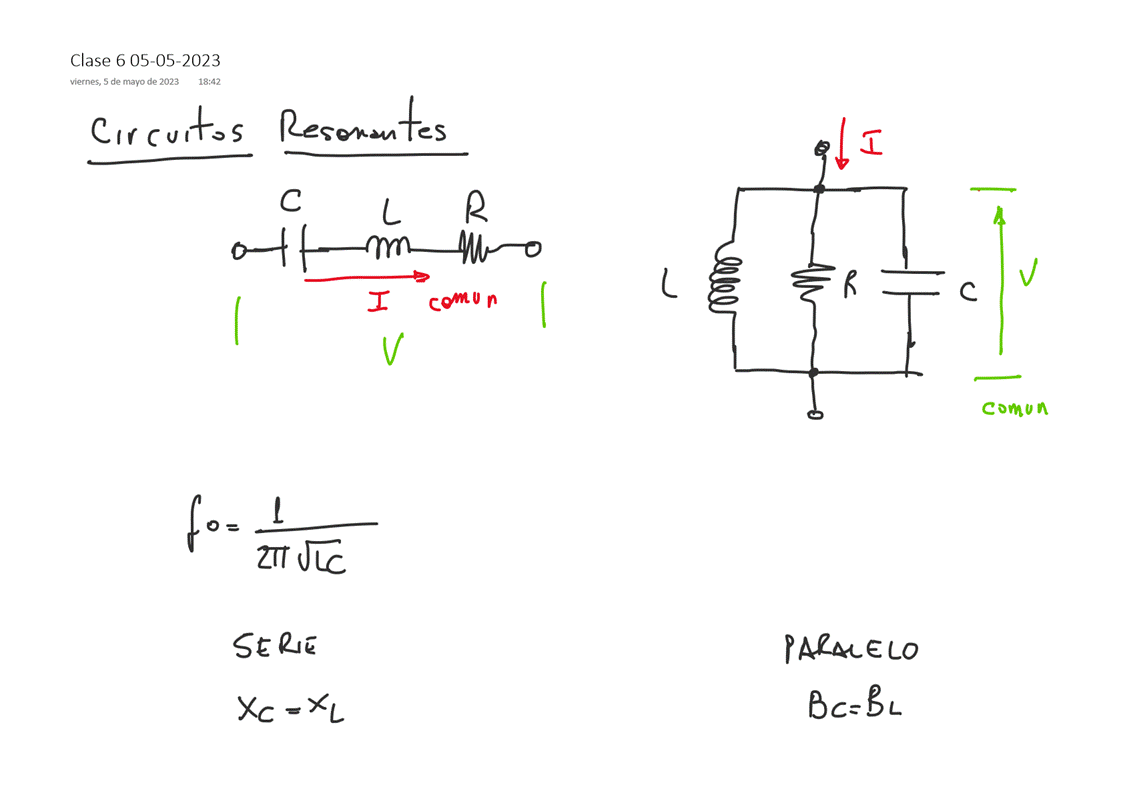 Clase 6 05-05-2023
viernes, 5 de mayo de 2023 18:42
Circuitos Resonantes
C L R
I comun
V
I
L R C V
comun
fo = 1 / 2π √LC
SERIE
XC = XL
PARALELO
BC = BL